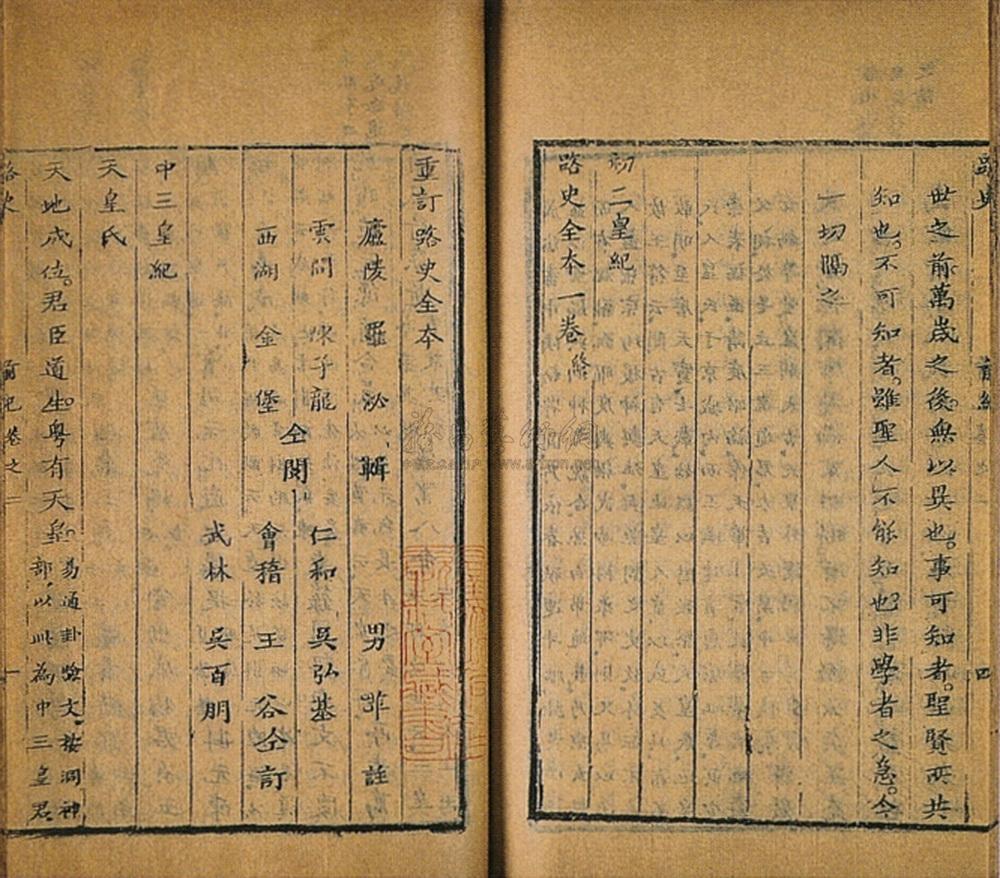 世之前萬歲之後無以異也事可知者聖賢所共
知也不可知者雖聖人不能知也非學者之急今
一切闊之
初三皇紀
路史全本一卷終
重訂路史全本
廬陵 羅泌 輯 男 苹 註
雲間 陳子龍
西湖 金堡
仝閱
仁和 吳弘基
會稽 王 仝訂
武林 吳百朋
中三皇紀
天皇氏
天地成位君臣道生粵有天皇
易通卦驗文按洞神
部以此為中三皇君
路史 前紀卷之二 一